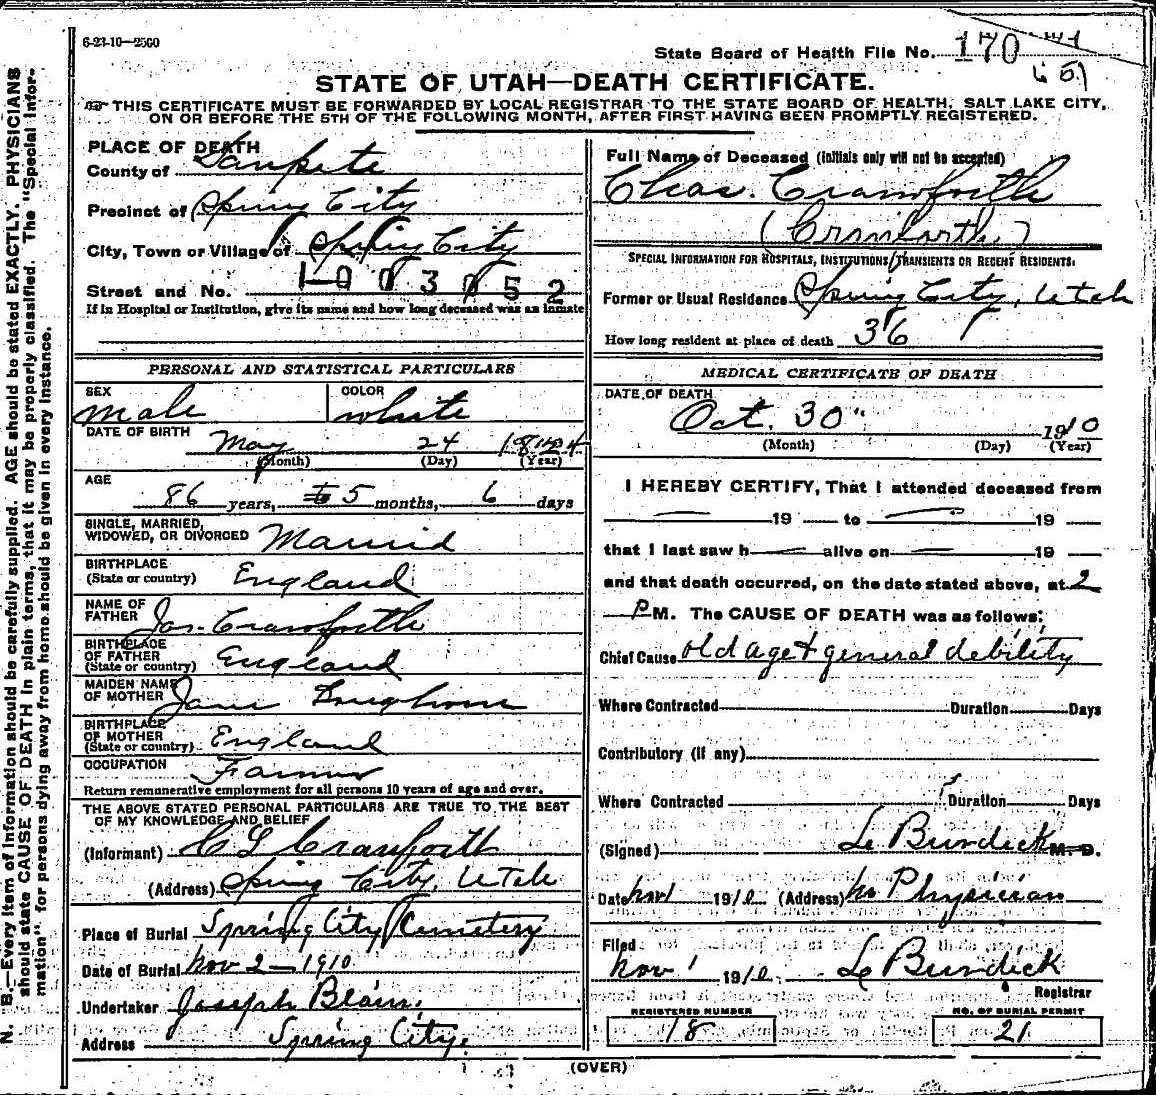 6-23-10—2500
State Board of Health File No. 170
STATE OF UTAH—DEATH CERTIFICATE.
THIS CERTIFICATE MUST BE FORWARDED BY LOCAL REGISTRAR TO THE STATE BOARD OF HEALTH, SALT LAKE CITY,
ON OR BEFORE THE 5TH OF THE FOLLOWING MONTH, AFTER FIRST HAVING BEEN PROMPTLY REGISTERED.
PLACE OF DEATH
County of Sanpete
Precinct of Spring City
City, Town or Village of Spring City
Street and No.
If in Hospital or Institution, give its name and how long deceased was an inmate
Full Name of Deceased (initials only will not be accepted)
Chas. Crawforth
SPECIAL INFORMATION FOR HOSPITALS, INSTITUTIONS, TRANSIENTS OR RECENT RESIDENTS.
Former or Usual Residence Spring City, Utah
How long resident at place of death 36
PERSONAL AND STATISTICAL PARTICULARS
SEX male
COLOR white
DATE OF BIRTH May 24 1824
(Month) (Day) (Year)
AGE 86 years, 5 months, 6 days
SINGLE, MARRIED,
WIDOWED, OR DIVORCED Married
BIRTHPLACE
(State or country) England
NAME OF
FATHER Jas. Crawforth
BIRTHPLACE
OF FATHER
(State or country) England
MAIDEN NAME
OF MOTHER Jane
BIRTHPLACE
OF MOTHER
(State or country) England
OCCUPATION Farmer
Return remunerative employment for all persons 10 years of age and over.
THE ABOVE STATED PERSONAL PARTICULARS ARE TRUE TO THE BEST
OF MY KNOWLEDGE AND BELIEF
(Informant) C L Crawforth
(Address) Spring City, Utah
Place of Burial Spring City Cemetery
Date of Burial Nov 2 — 1910
Undertaker Joseph Blain.
Address Spring City.
MEDICAL CERTIFICATE OF DEATH
DATE OF DEATH
Oct. 30" 1910
(Month) (Day) (Year)
I HEREBY CERTIFY, That I attended deceased from
— 19 to — 19
that I last saw h — alive on — 19
and that death occurred, on the date stated above, at 2
P M. The CAUSE OF DEATH was as follows:
Chief Cause old age & general debility
Where Contracted Duration Days
Contributory (if any)
Where Contracted Duration Days
(Signed) Burdick M. D.
Date Nov 1 1910 (Address) no Physician
Filed
Nov 1 1910 Burdick
Registrar
REGISTERED NUMBER
18
NO. OF BURIAL PERMIT
21
(OVER)
N. B.—Every item of information should be carefully supplied. AGE should be stated EXACTLY. PHYSICIANS
should state CAUSE OF DEATH in plain terms, that it may be properly classified. The "Special Infor-
mation" for persons dying away from home should be given in every instance.